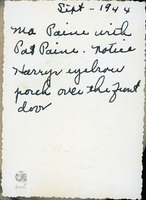 Sept - 1944
Ma Paine with
Pat Paine. notice
Harrys eyebrow
porch over the front
door